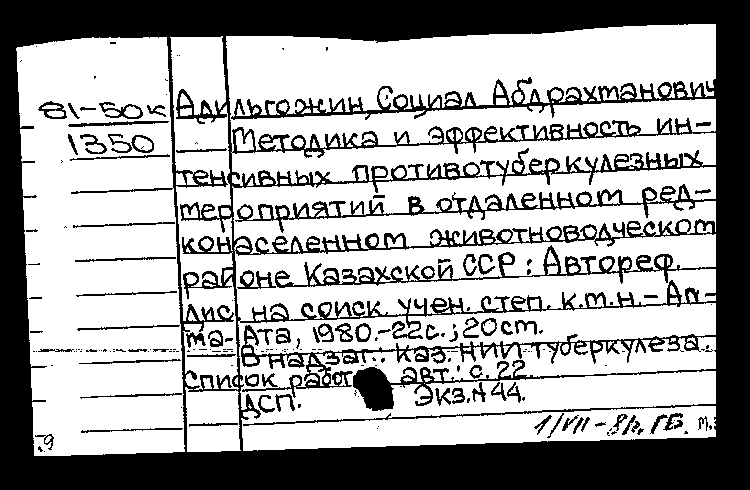 81-50к Адильгожин, Социал Абдрахтанович
1350 Методика и эффективность ин-
тенсивных противотуберкулезных
мероприятий в отдаленном ред-
конаселенном животноводческом
районе Казахской ССР: Автореф.
дис. на соиск. учен. степ. к.м.н. - Ал-
ма-Ата, 1980.-22с.; 20см.
В надзаг.: Каз. НИИ туберкулеза.
Список работ авт.: с. 22
ДСП. Экз.N 44.
1/VII-81г. ГБ.
.9